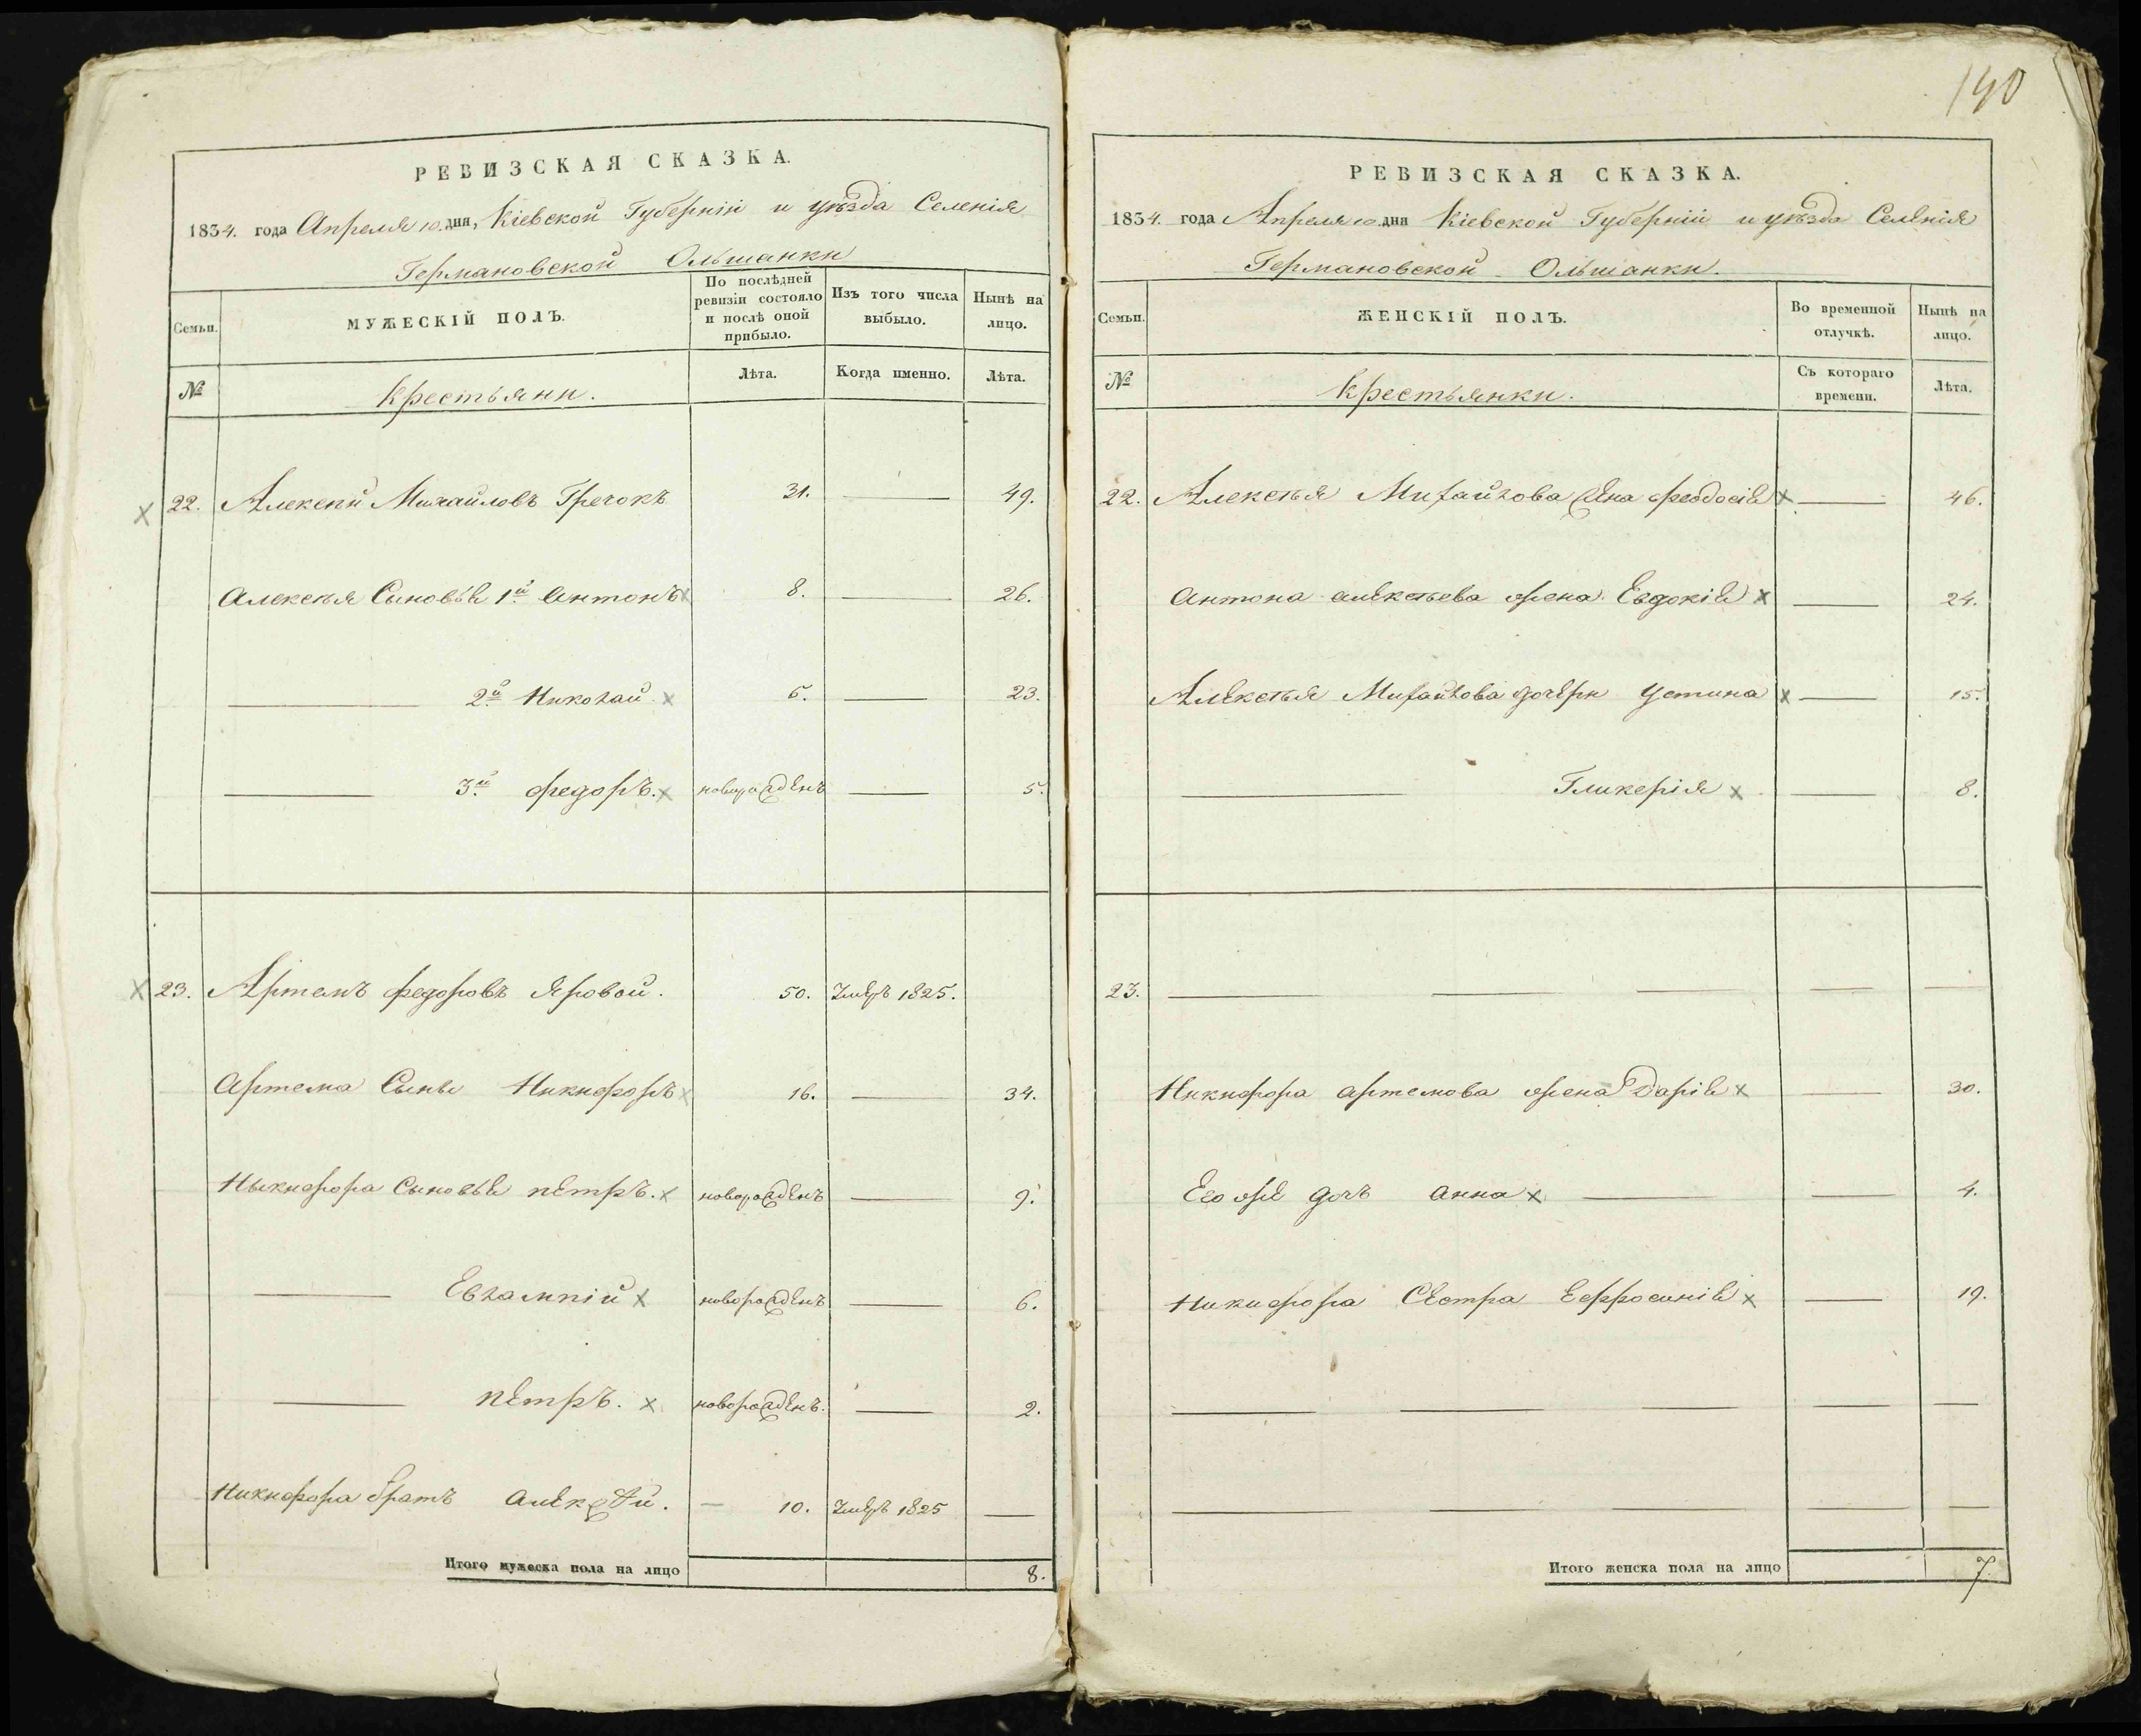 190
РЕВИЗСКАЯ СКАЗКА.
1834. года Апреля 10. дня, Кіевской Губерніи и уѣзда Селенія
Германовской Ольшанки
Семьи.
МУЖЕСКІЙ ПОЛЪ.
По послѣдней ревизіи состояло и послѣ оной прибыло.
Изъ того числа выбыло.
Нынѣ на лицо.
№
Крестьяни.
Лѣта.
Когда именно.
Лѣта.
22. Алексей Михайловъ Гречокъ 31. 49.
Алексѣя Сыновьѣ 1й Антонъ 8. 26.
2й Николай 5. 23.
3й Федоръ. новорожденъ 5.
23. Артемъ Федоровъ Яровой. 50. 1825.
Артема Сыны Никифоръ 16. 34.
Никифора Сыновьѣ Петръ. новорожденъ 9.
Евлампій новорожденъ 6.
Петръ. новорожденъ. 2.
Никифора братъ Алексѣй. 10. 1825
Итого мужеска пола на лицо 8.
РЕВИЗСКАЯ СКАЗКА.
1834. года Апреля 10 дня Кіевской Губерніи и уѣзда Селенія
Германовской Ольшанки.
Семьи.
ЖЕНСКІЙ ПОЛЪ.
Во временной отлучкѣ.
Нынѣ на лицо.
№
Крестьянки.
Съ котораго времени.
Лѣта.
22. Алексѣя Михайлова жена Феодосія 46.
Антона Алексѣева жена Евдокія 24.
Алексѣя Михайлова дочери Устина 15.
Гликерія 8.
23.
Никифора Артемова жена Дарія 30.
Его же дочь Анна 4.
Никифора Сестра Ефросинія 19.
Итого женска пола на лицо 7.